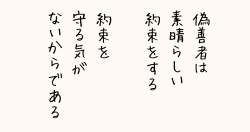 偽善者は
素晴らしい
約束をする
約束を
守る気が
ないからである